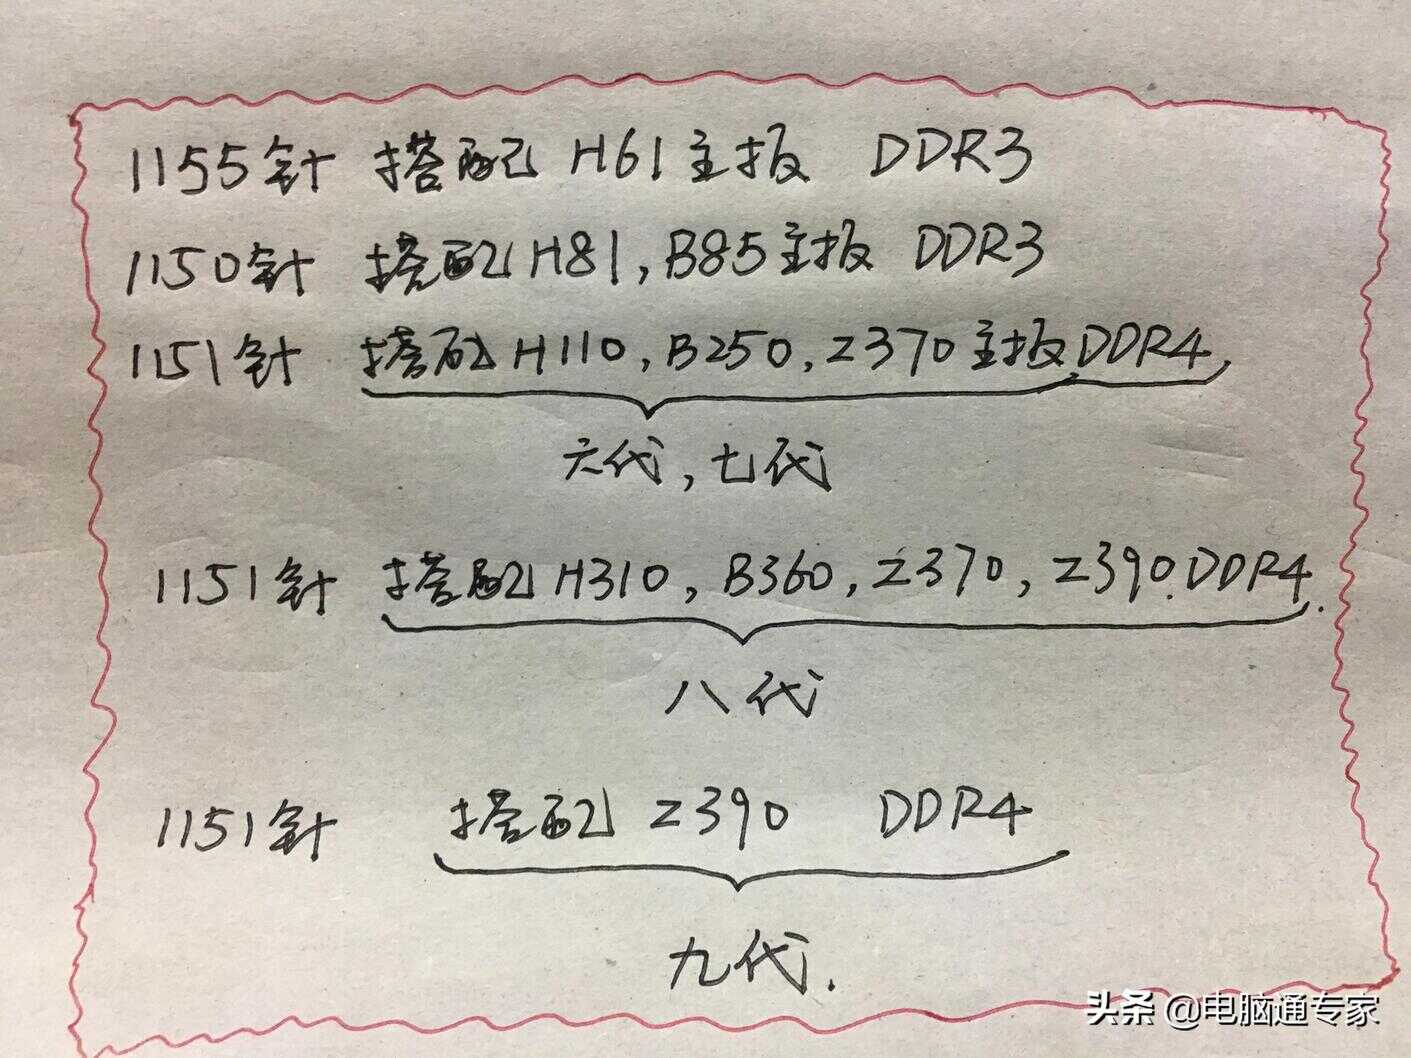 1155针 搭配 H61主板 DDR3
1150针 搭配H81,B85主板 DDR3
1151针 搭配H110,B250,Z370主板DDR4,
六代,七代
1151针 搭配H310,B360,Z370,Z390.DDR4.
八代
1151针 搭配 Z390 DDR4
九代.
头条 @电脑通专家